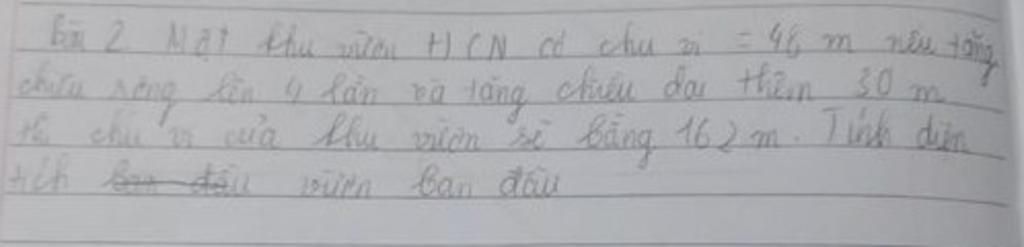 Bài 2 Một khu vườn HCN có chu vi = 46 m nếu tăng
chiều rộng lên 4 lần và tăng chiều dài thêm 30 m
thì chu vi của khu vườn sẽ bằng 162 m. Tính diện
tích ban đầu vườn ban đầu